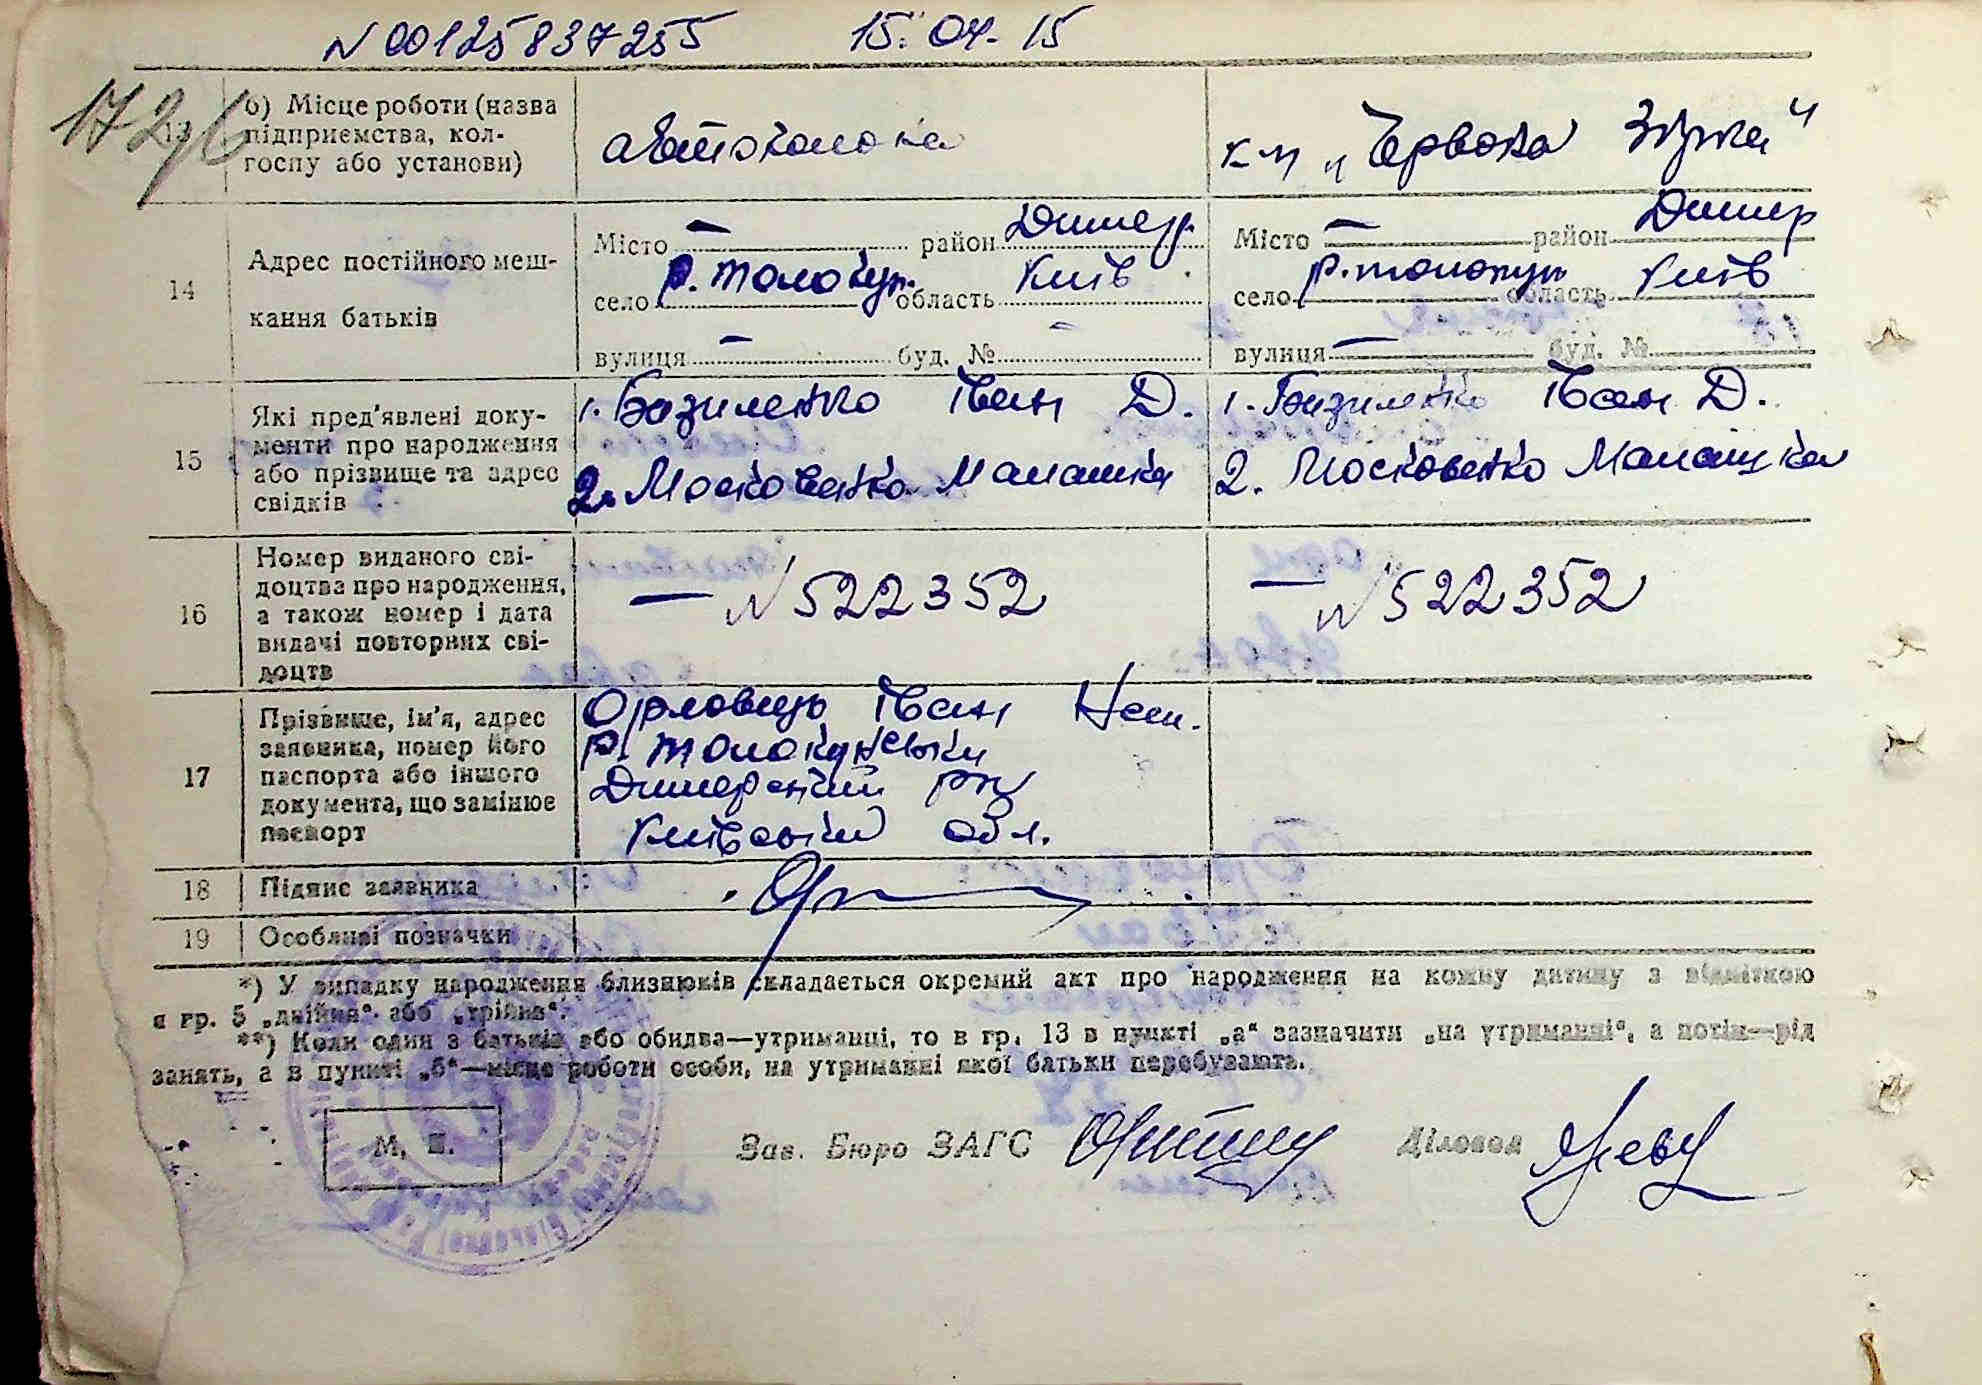 N 00125837255 15.04.15
172
13
б) Місце роботи (назва
підприємства, кол-
госпу або установи)
автоколона
к-п „Червона Зірка"
14
Адрес постійного меш-
кання батьків
Місто — район Димер.
село Р. Толокун. область Київ
вулиця — буд. №
Місто — район Димер
село Р. Толокун область Київ
вулиця — буд. №
15
Які пред'явлені доку-
менти про народження
або прізвище та адрес
свідків
1. Базиленко Іван Д.
2. Московенко Маланка
1. Базиленко Іван Д.
2. Московенко Маланка
16
Номер виданого сві-
доцтва про народження,
а також номер і дата
видачі повторних сві-
доцтв
— N 522352
— N 522352
17
Прізвище, ім'я, адрес
заявника, номер його
паспорта або іншого
документа, що замінює
паспорт
Орловець Іван
Р. Толокунський
Димерський р-н
Київський обл.
18
Підпис заявника
19
Особливі позначки
*) У випадку народження близнюків складається окремий акт про народження на кожну дитину з відміткою
в гр. 5 „двійня" або „трійня".
**) Коли один з батьків або обидва—утриманці, то в гр. 13 в пункті „а" зазначити „на утриманні", а потім—рід
занять, а в пункті „б"—місце роботи особи, на утриманні якої батьки перебувають.
М. П.
Зав. Бюро ЗАГС
Діловод